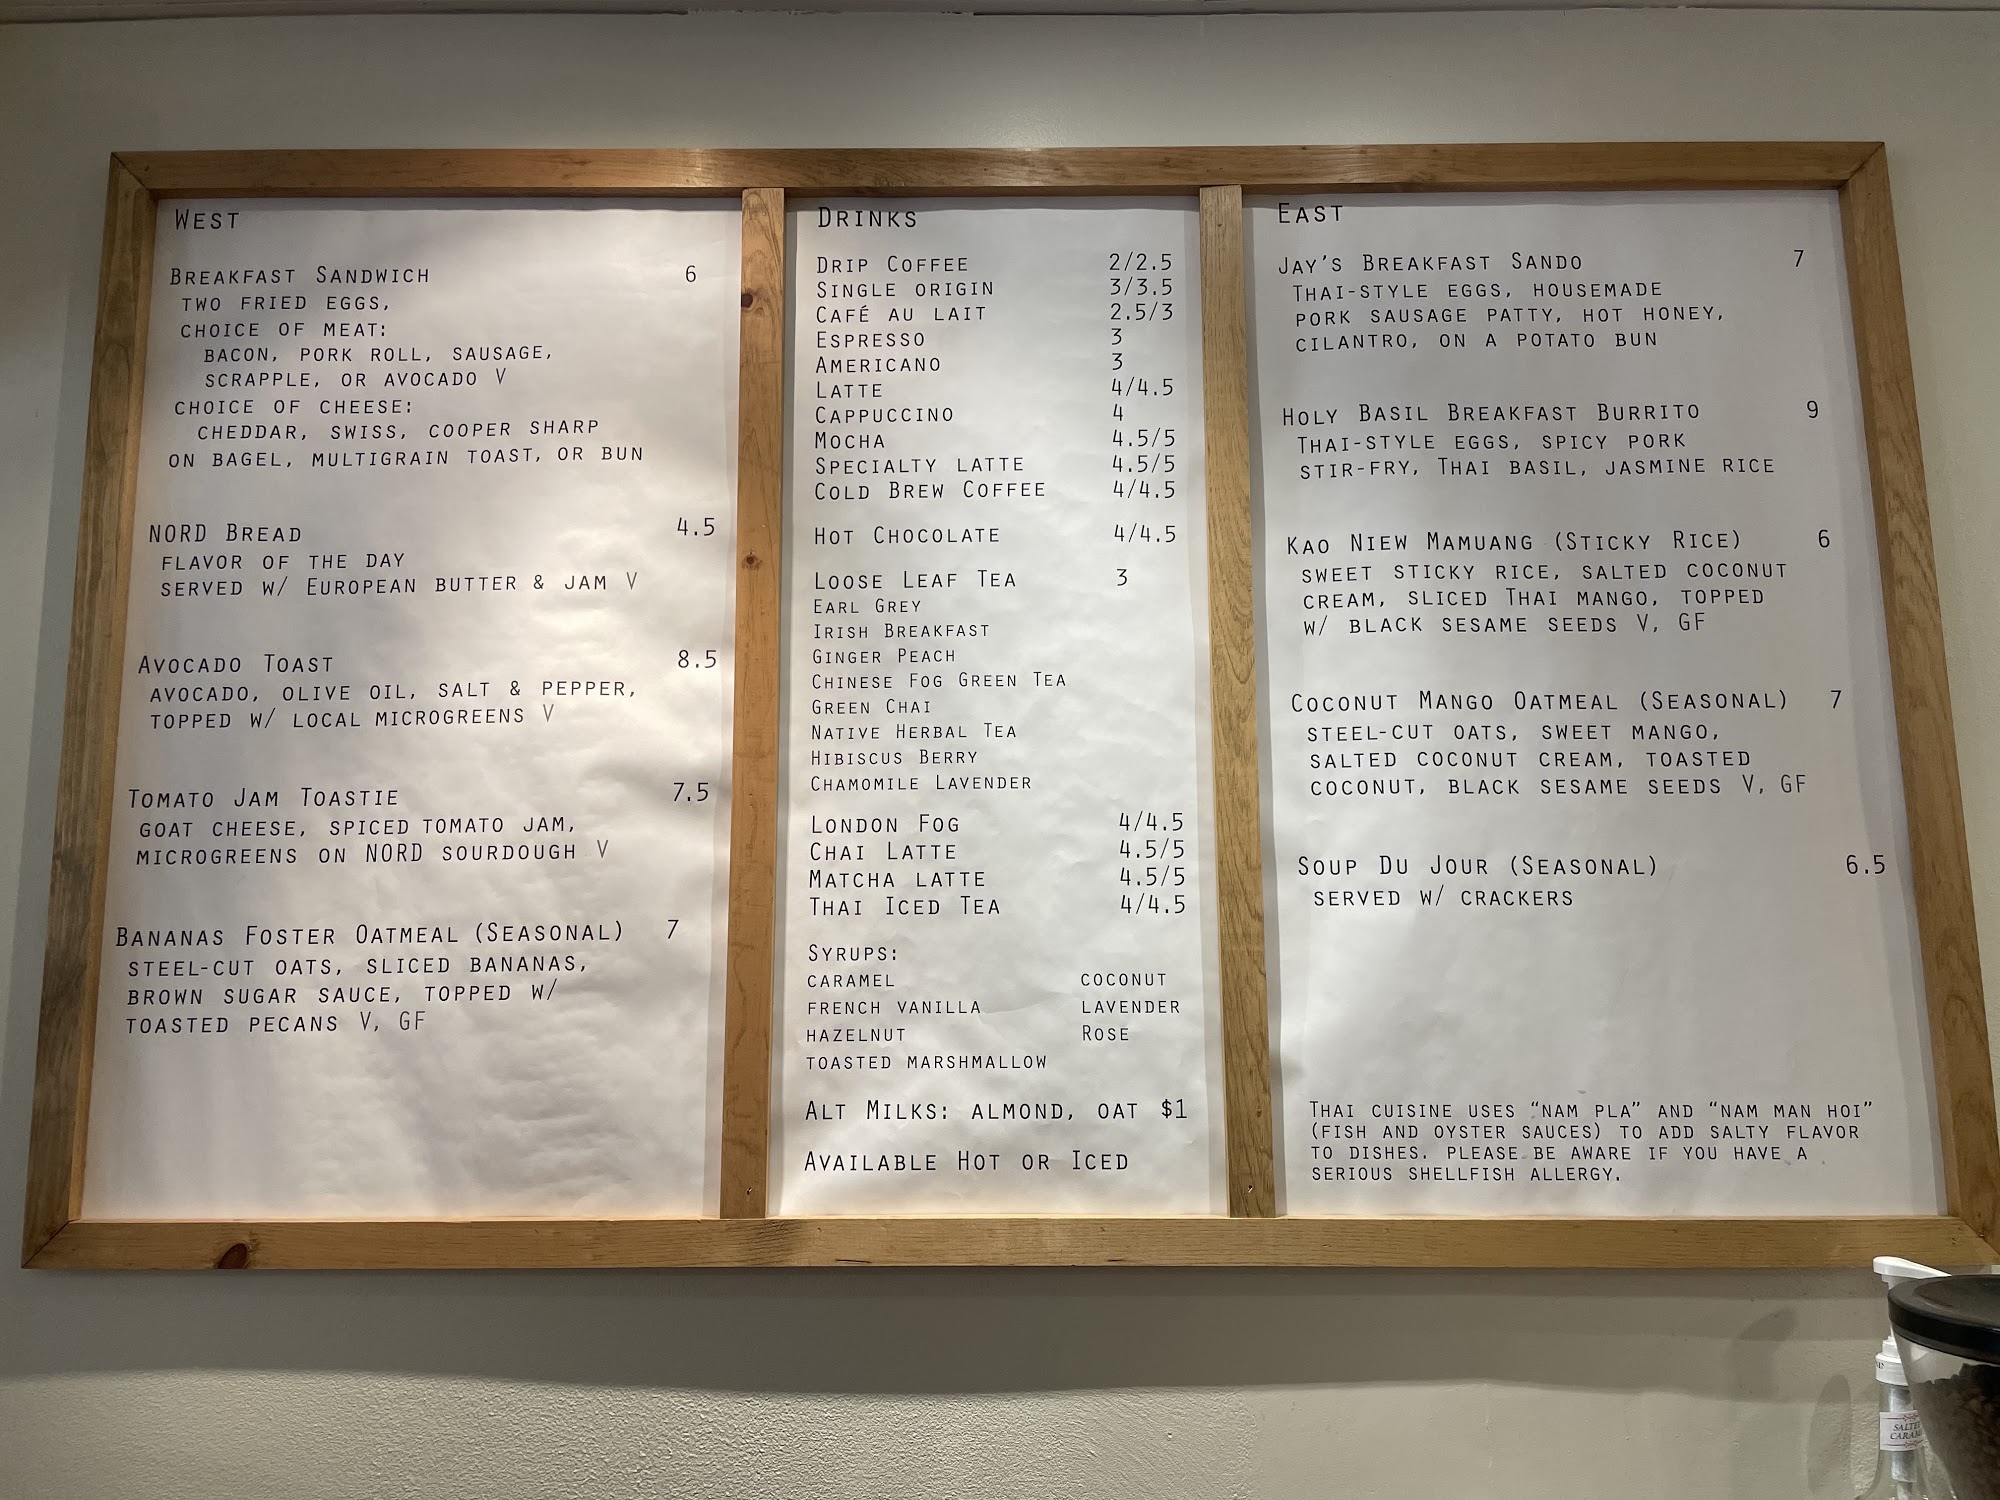 West
Breakfast Sandwich 6
two fried eggs,
choice of meat:
bacon, pork roll, sausage,
scrapple, or avocado V
choice of cheese:
cheddar, swiss, cooper sharp
on bagel, multigrain toast, or bun
NORD Bread 4.5
flavor of the day
served w/ European butter & jam V
Avocado Toast 8.5
avocado, olive oil, salt & pepper,
topped w/ local microgreens V
Tomato Jam Toastie 7.5
goat cheese, spiced tomato jam,
microgreens on NORD sourdough V
Bananas Foster Oatmeal (Seasonal) 7
steel-cut oats, sliced bananas,
brown sugar sauce, topped w/
toasted pecans V, GF
Drinks
Drip Coffee 2/2.5
Single origin 3/3.5
Café au lait 2.5/3
Espresso 3
Americano 3
Latte 4/4.5
Cappuccino 4
Mocha 4.5/5
Specialty latte 4.5/5
Cold Brew Coffee 4/4.5
Hot Chocolate 4/4.5
Loose Leaf Tea 3
Earl Grey
Irish Breakfast
Ginger Peach
Chinese Fog Green Tea
Green Chai
Native Herbal Tea
Hibiscus Berry
Chamomile Lavender
London Fog 4/4.5
Chai Latte 4.5/5
Matcha latte 4.5/5
Thai Iced Tea 4/4.5
Syrups:
caramel coconut
french vanilla lavender
hazelnut Rose
toasted marshmallow
Alt Milks: almond, oat $1
Available Hot or Iced
East
Jay's Breakfast Sando 7
Thai-style eggs, housemade
pork sausage patty, hot honey,
cilantro, on a potato bun
Holy Basil Breakfast Burrito 9
Thai-style eggs, spicy pork
stir-fry, Thai basil, jasmine rice
Kao Niew Mamuang (Sticky Rice) 6
sweet sticky rice, salted coconut
cream, sliced Thai mango, topped
w/ black sesame seeds V, GF
Coconut Mango Oatmeal (Seasonal) 7
steel-cut oats, sweet mango,
salted coconut cream, toasted
coconut, black sesame seeds V, GF
Soup Du Jour (Seasonal) 6.5
served w/ crackers
Thai cuisine uses "nam pla" and "nam man hoi"
(fish and oyster sauces) to add salty flavor
to dishes. Please be aware if you have a
serious shellfish allergy.